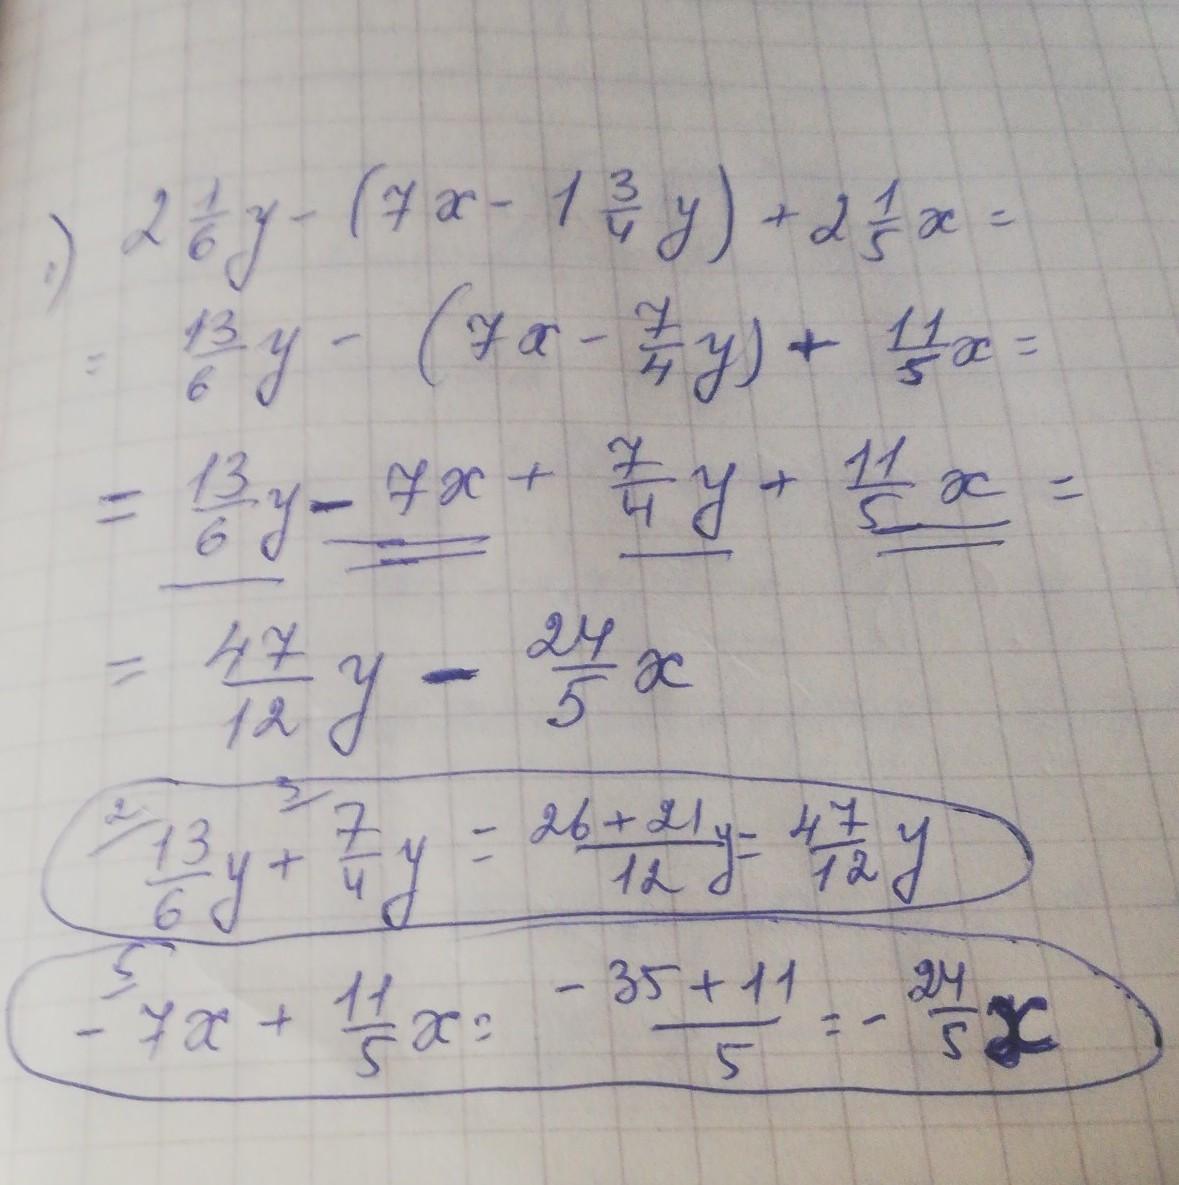 .) 2 1/6 y - (7x - 1 3/4 y) + 2 1/5 x =
= 13/6 y - (7x - 7/4 y) + 11/5 x =
= 13/6 y - 7x + 7/4 y + 11/5 x =
= 47/12 y - 24/5 x
2/ 13/6 y + 3/ 7/4 y = 26+21/12 y = 47/12 y
5/ - 7x + 11/5 x = -35+11/5 = - 24/5 x